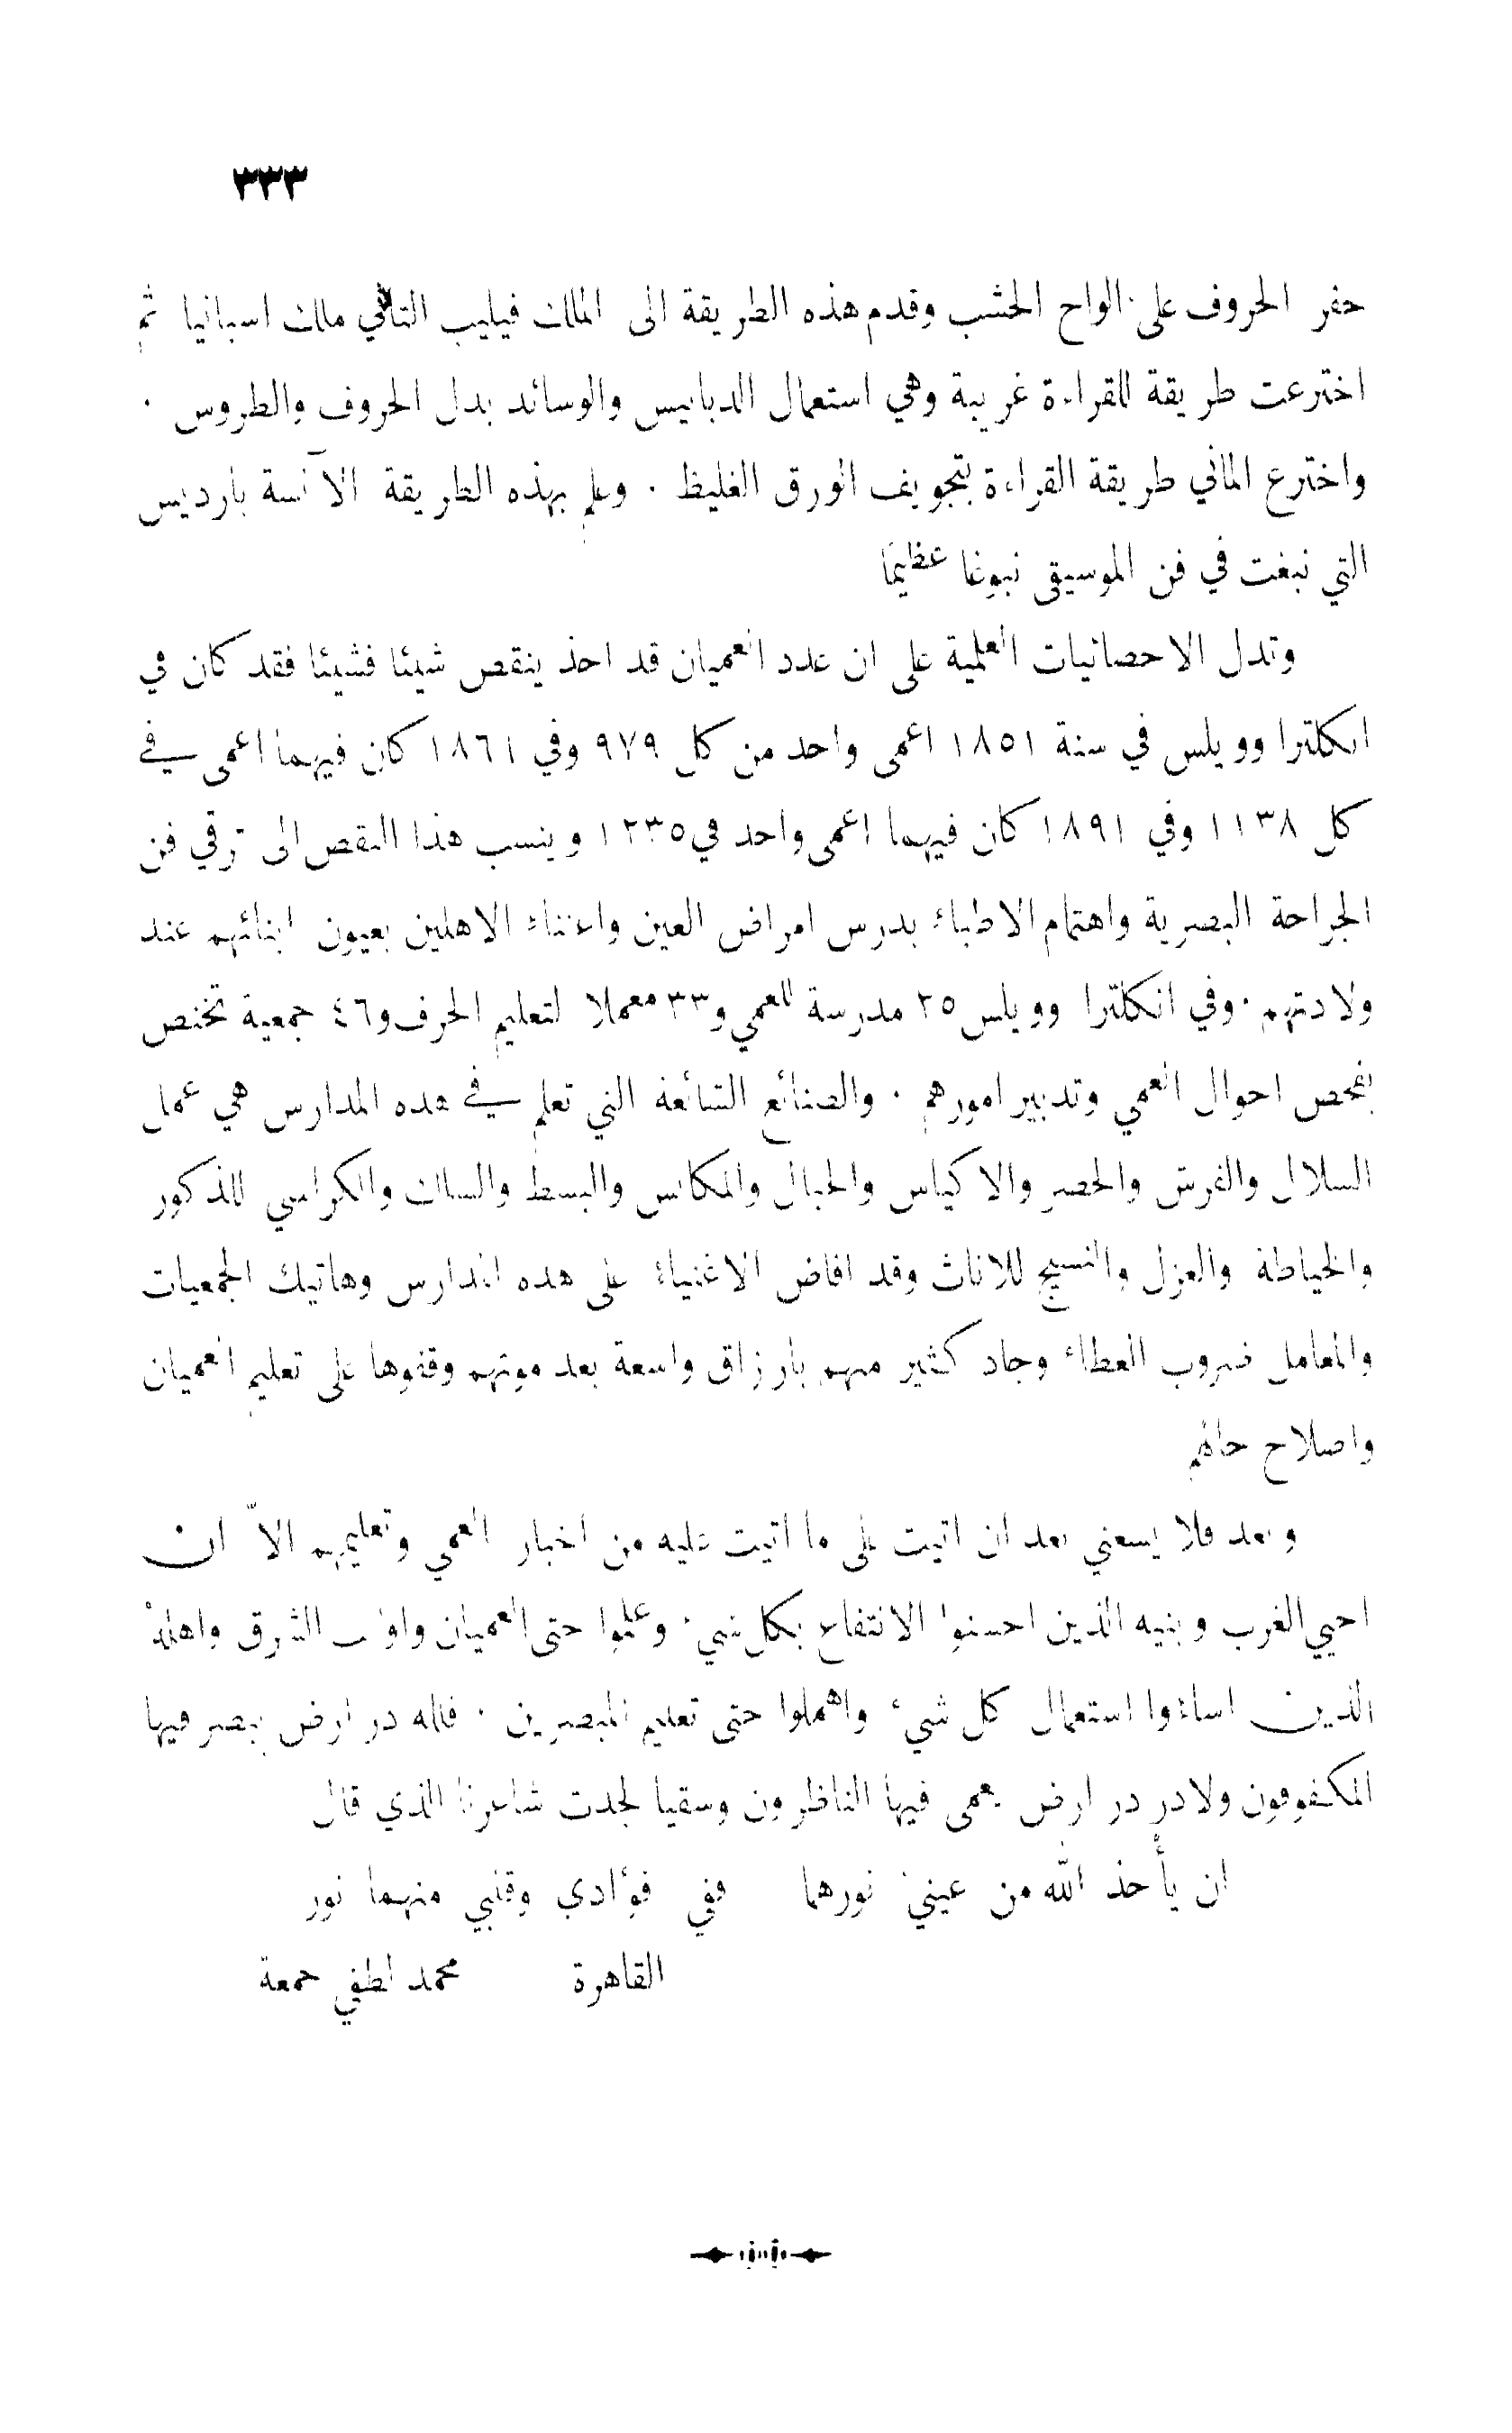 ٣٣٣
حفر الحروف على الواح الخشب وقدم هذه الطريقة الى الملك فيليب الثاني ملك اسبانيا ثم
اخترعت طريقة للقراءة غريبة وهي استعمال الدبابيس والوسائد بدل الحروف والطروس ٠
واخترع الماني طريقة القراءة بتجويف الورق الغليظ ٠ وعلم بهذه الطريقة الآنسة بارديس
التي نبغت في فن الموسيقى نبوغا عظيما
وتدل الاحصائيات العلمية على ان عدد العميان قد اخذ ينقص شيئا فشيئا فقد كان في
انكلترا وويلس في سنة ١٨٥١ اعمى واحد من كل ٩٧٩ وفي ١٨٦١ كان فيهما اعمى في
كل ١١٣٨ وفي ١٨٩١ كان فيهما اعمى واحد في ١٢٣٥ وينسب هذا النقص الى ترقي فن
الجراحة البصرية واهتمام الاطباء بدرس امراض العين واعتناء الاهلين بعيون ابنائهم عند
ولادتهم ٠ وفي انكلترا وويلس ٢٥ مدرسة للعمي و٣٣ معملا لتعليم الحرف و٤٦ جمعية تختص
بفحص احوال العمي وتدبير امورهم ٠ والصنائع الشائعة التي تعلم في هذه المدارس هي عمل
السلال والفرش والحصر والاكياس والحبال والمكانس والبسط والسلك والكراسي للذكور
والخياطة والغزل والنسيج للاناث وقد افاض الاغنياء على هذه المدارس وهاتيك الجمعيات
والمعامل ضروب العطاء وجاد كثير منهم بارزاق واسعة بعد موتهم وقفوها على تعليم العميان
واصلاح حالهم
وبعد فلا يسعني بعد ان اتيت على ما اتيت عليه من اخبار العمي وتعليمهم الاّ ان
احيي الغرب وبنيه الذين احسنوا الانتفاع بكل شيء وعلموا حتى العميان والوم الشرق واهله
الذين اساءوا استعمال كل شيء واهملوا حتى تعليم المبصرين ٠ فلله در ارض يبصر فيها
المكفوفون ولا در در ارض يعمى فيها الناظرون وسقيا لجدت شاعرنا الذي قال
ان يأخذ الله من عينيّ نورهما ففي فؤادي وقلبي منهما نور
القاهرة محمد لطفي جمعة